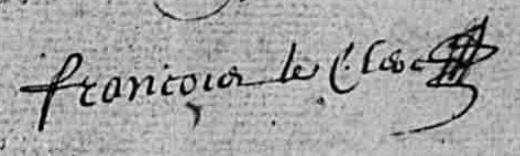 françois le Clerc